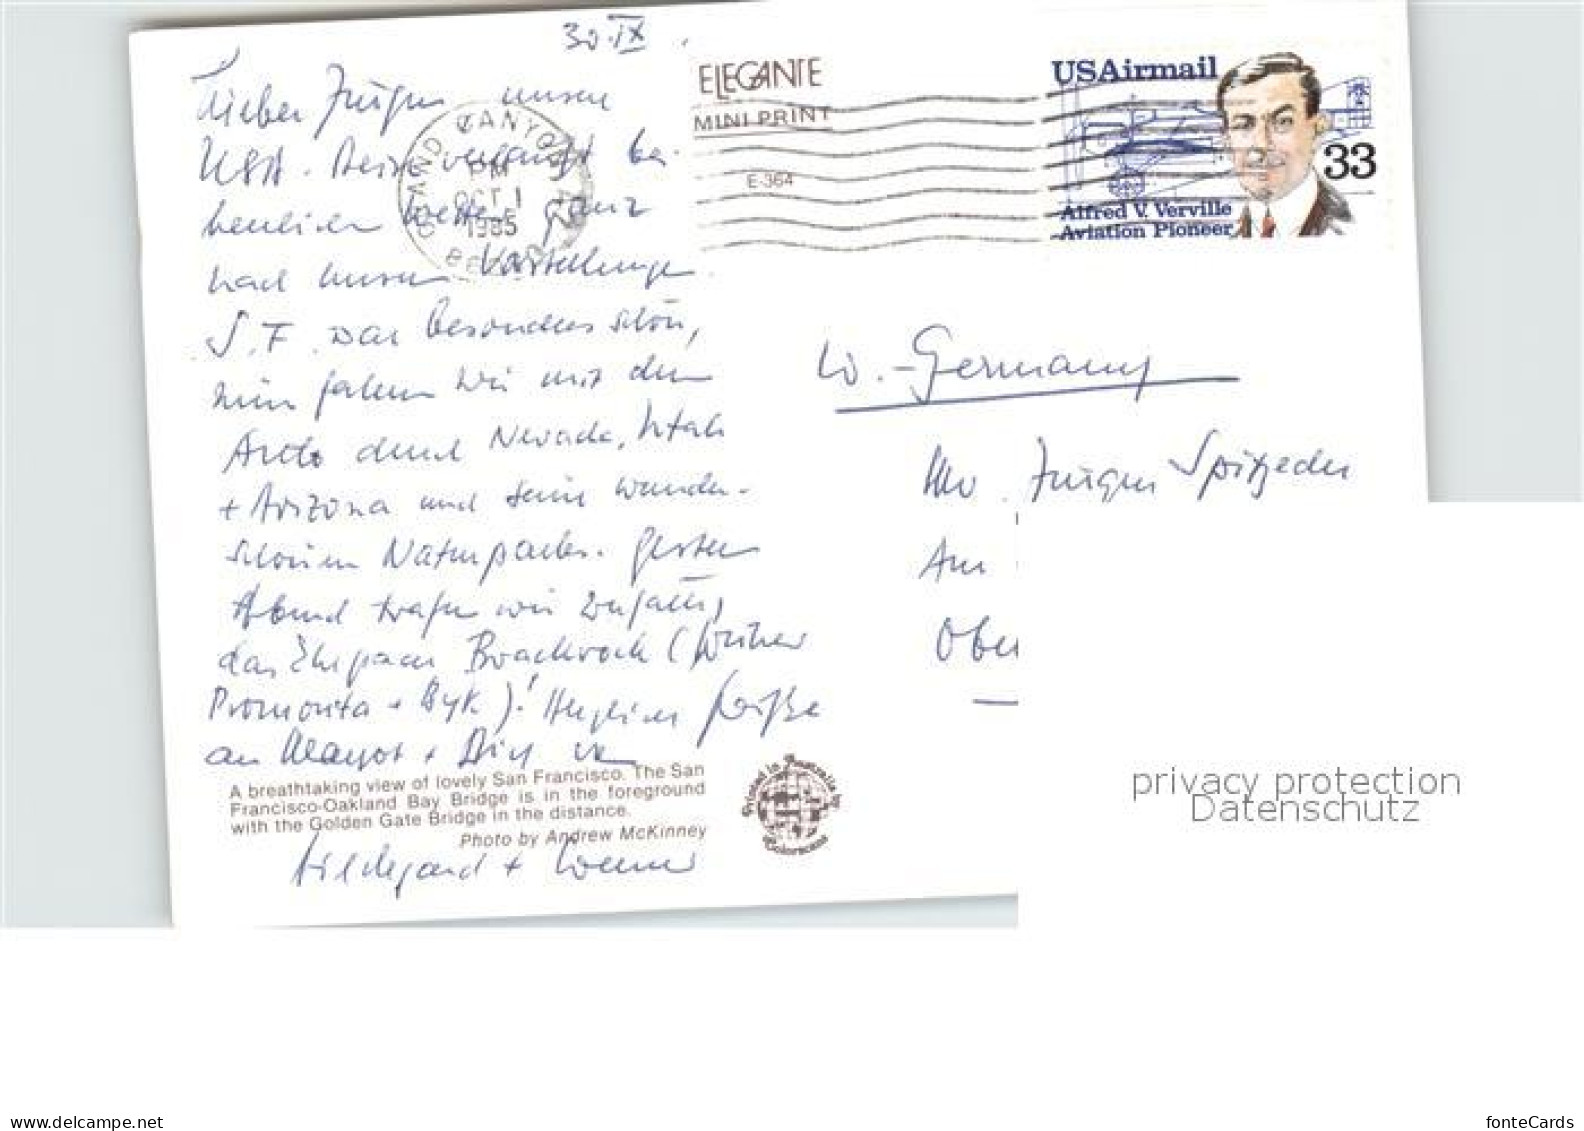 30.IX.
Lieber Jürgen unsere
USA-Reise verläuft bei
herrlichem Wetter ganz
nach unseren Vorstellungen
S.F. war besonders schön,
nun fahren wir mit dem
Auto durch Nevada, Utah
+ Arizona und seine wunder-
schönen Naturparks. Gestern
Abend trafen wir zufällig
das Ehepaar (früher
Promonta + Byk)! Herzliche Grüße
an Margot + Dich
Hildegard + Werner
ELEGANTE
MINI PRINT
E-364
GRAND CANYON
PM
OCT 1
1985
USAirmail
33
Alfred V. Verville
Aviation Pioneer
W.-Germany
Jürgen Spitzeder
Am
Ober
A breathtaking view of lovely San Francisco. The San
Francisco-Oakland Bay Bridge is in the foreground
with the Golden Gate Bridge in the distance.
Photo by Andrew McKinney
Printed in Australia by
Colorscans
privacy protection
Datenschutz
www.delcampe.net
fonteCards